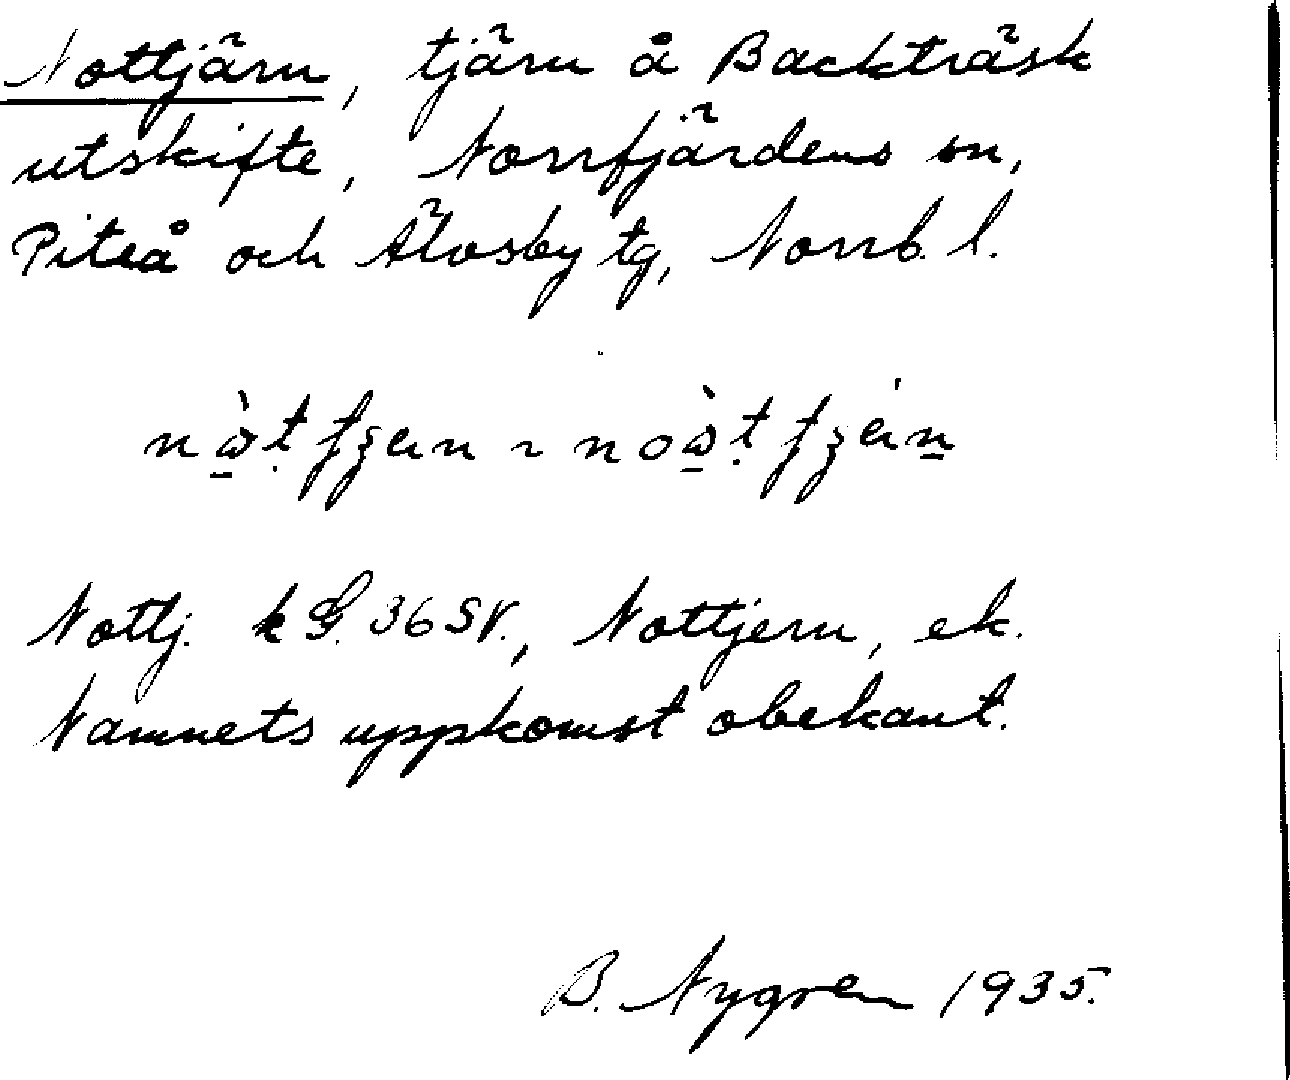 Nottjärn, tjärn å Backträsk
utskifte, Norrfjärdens sn,
Piteå och Älvsby tg, Norrb. l.
Nottj. k G. 36 SV., Nottjern, ek.
Namnets uppkomst obekant.
B. Nygren 1935.